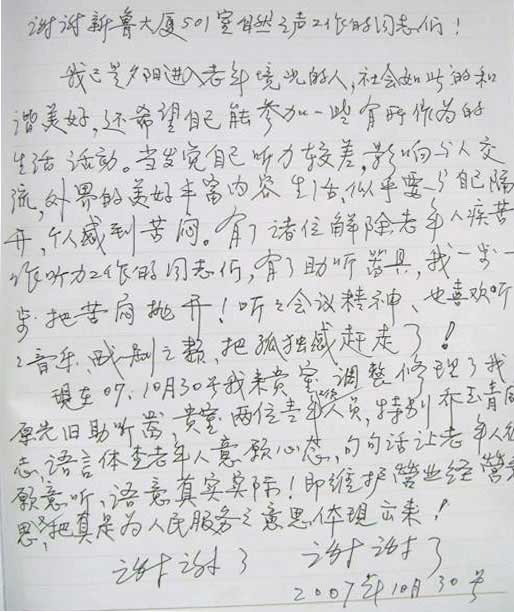 谢谢新鲁大厦501室自然之声工作的同志们!
我已是夕阳进入老年境况的人,社会如此的和
谐美好,还希望自己能参加一些有所作为的
生活活动。当发觉自己听力较差,影响与人交
流,外界的美好丰富内容生活,似乎要与自己隔
开,个人感到苦闷。有了诸位解除老年人疾苦
作听力工作的同志们,有了助听器具,我一步一
步把苦闷抛开!听之会议精神、也喜欢听
之音乐、戏剧之类,把孤独感赶走了!
现在07.10月30号我来贵室,调整修理了我
原先旧助听器,贵室两位青年人员,特别乔玉青同
志,语言体查老年人意愿心态,句句话让老年人很
愿意听,语意真实实际!即维护营业经营意
思,又把真是为人民服务之意思体现出来!
谢谢了 谢谢了
2007年10月30号